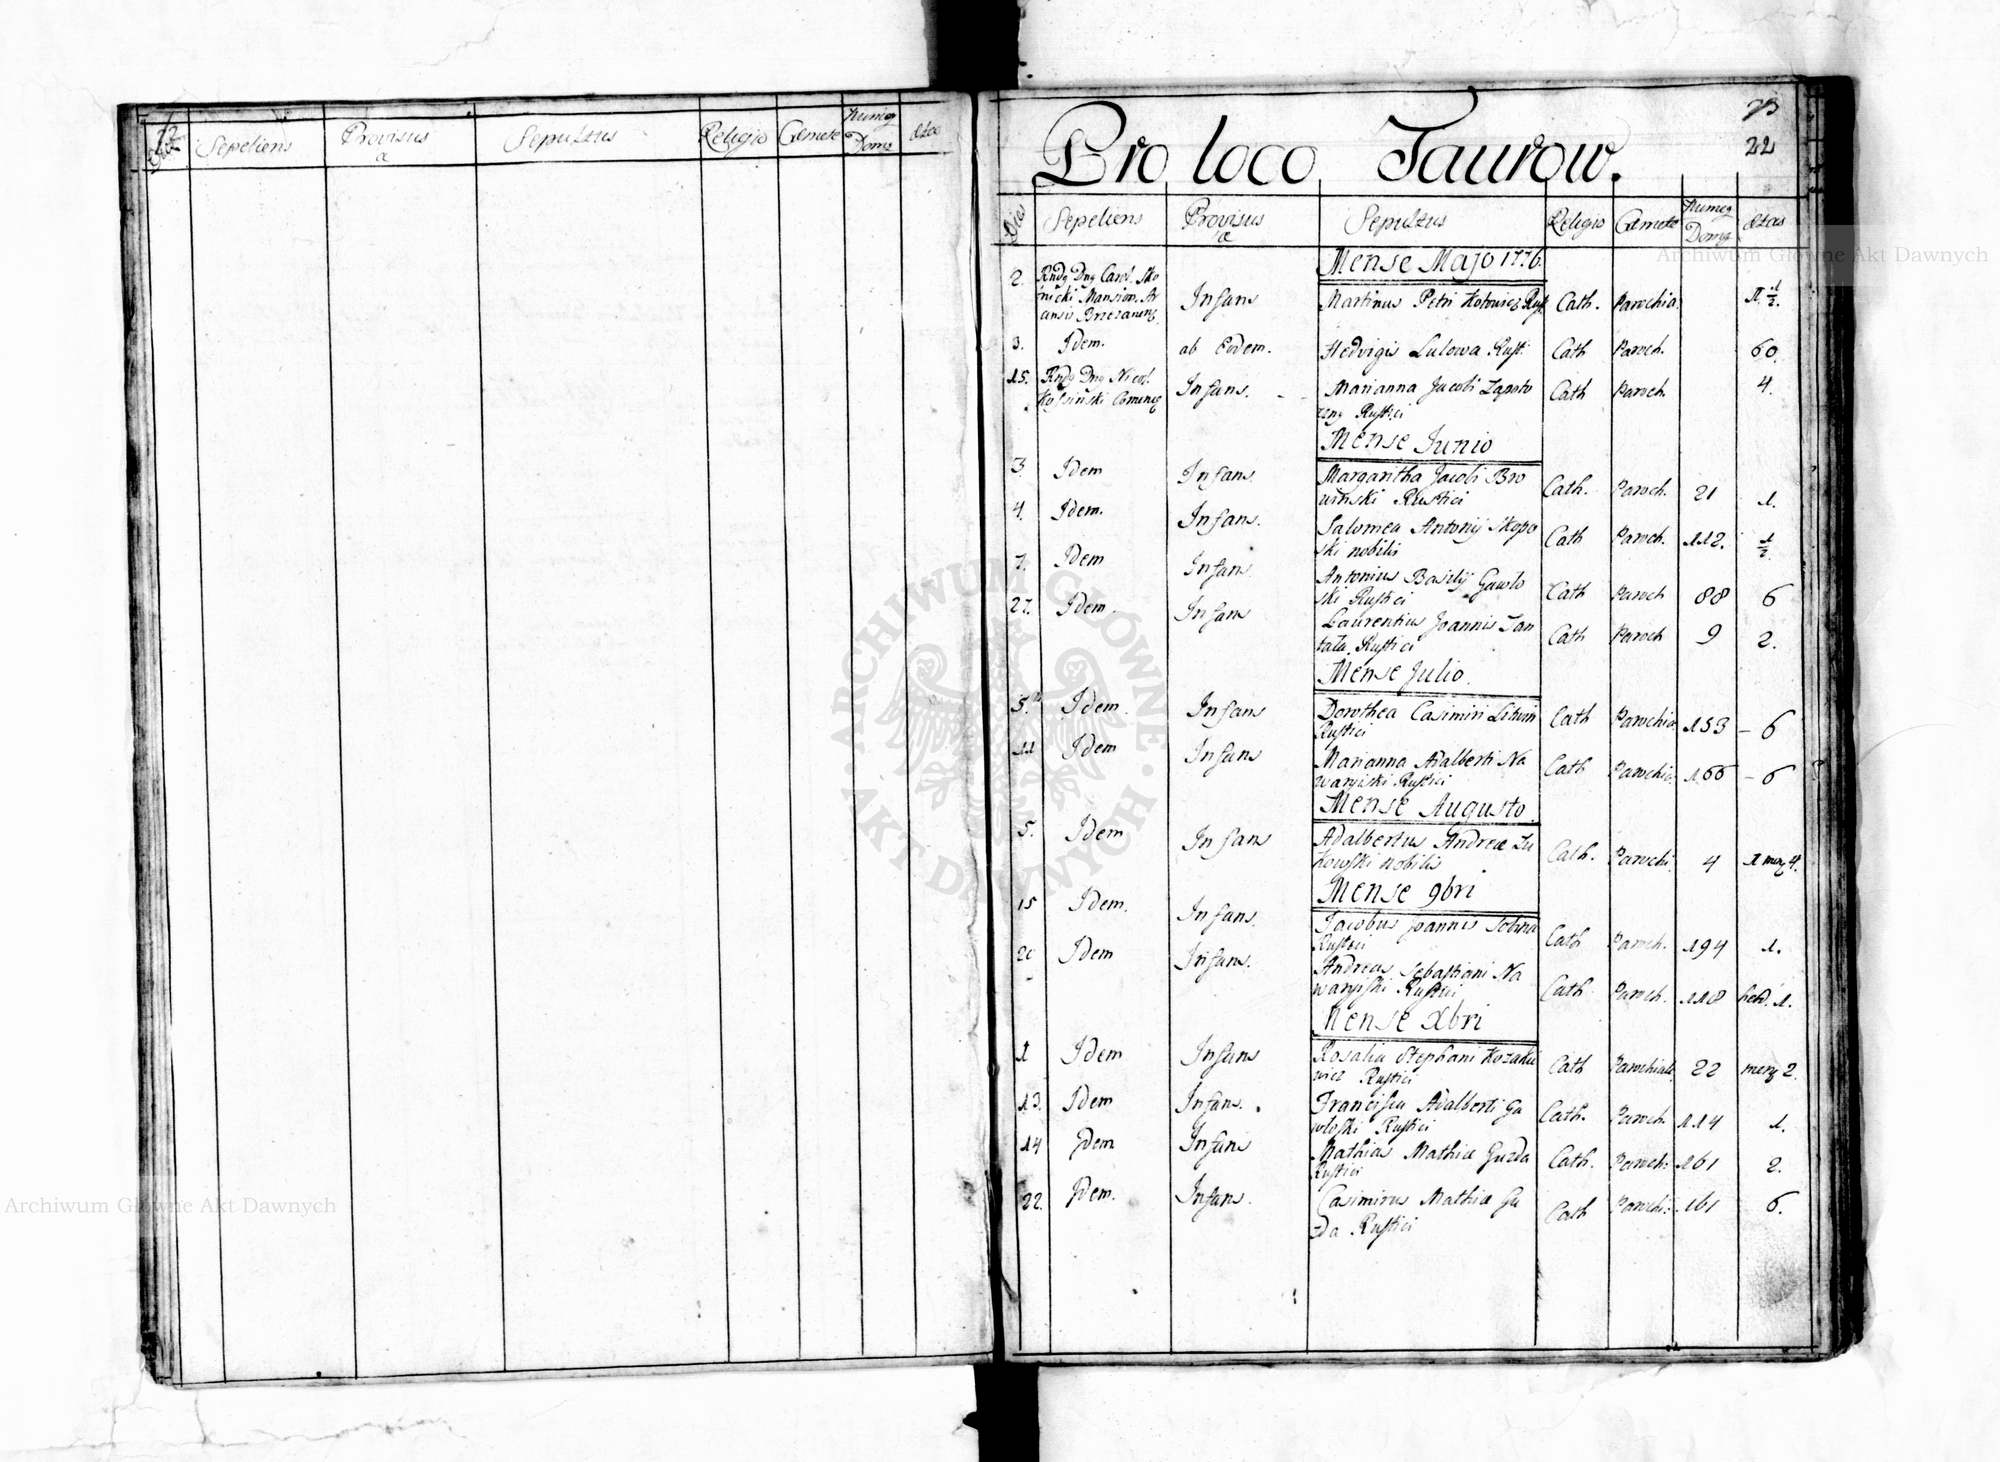 72
Dies Sepeliens Provisus a Sepultus Religio Cæmete Numeg Domg Ætas
73
22
Pro loco Taurow.
Dies Sepeliens Provisus a Sepultus Religio Cæmete Numeg Domg Ætas
Mense Majo 1776.
2. Rndg Dng Carol. Sko
nicki Mansion. Ar Infans Martinus Petri Kotowicz Rust Cath. Parochia 11 1/2.
ansis Brzezaneng
3. Idem. ab Eodem. Hedvigis Lulowa Rusti Cath Paroch. 60.
15. Rndg Dng Nicol. Infans. Marianna Jacobi Zapoto Cath Paroch. 4.
Kossinski Comeneg czny Rustici
Mense Junio
3 Idem Infans. Margaritha Jacobi Bro
winski Rustici Cath. Paroch. 21 1.
4. Idem. Infans. Salomea Antonij Skopo
ski nobilis Cath Paroch. 112. 1/2
7. Idem Infans Antonius Basilij Gawlo
ski Rustici Cath Paroch 88 6
27. Idem. Infans Laurentius Joannis Tan
tala. Rustici Cath Paroch 9 2.
Mense Julio.
5. Idem. Infans Dorothea Casimiri Litwin
Rustici Cath Parochia 153 – 6
11 Idem Infans Marianna Adalberti Na
waryiski Rustici Cath Parochia 166 – 6
Mense Augusto.
5. Idem Infans Adalbertus Andreæ Zu
kowski nobilis Cath. Parochi. 4 1 meng 4.
Mense 9bri
15 Idem. Infans. Jacobus Joannis Sobina
Rustici Cath Paroch. 194 1.
20 Idem Infans. Andreas Sebastiani Na
waryiski Rustici Cath Paroch. 118 hebd. 1.
Mense Xbri
1 Idem Infans Rosalia Stephani Kozakie
wicz Rustici Cath Parochiali 22 meng 2.
13. Idem Infans. Francisca Adalberti Ga
wloski Rustici Cath. Paroch. 114 1.
14 Idem Infans Mathias Mathiæ Guzda
Rustici Cath. Paroch: 161 2.
22. Idem. Infans. Casimirus Mathiæ Gu
zda Rustici Cath Parochi: 161 6.
ARCHIWUM GŁÓWNE · AKT DAWNYCH ·
Archiwum Główne Akt Dawnych
Archiwum Główne Akt Dawnych